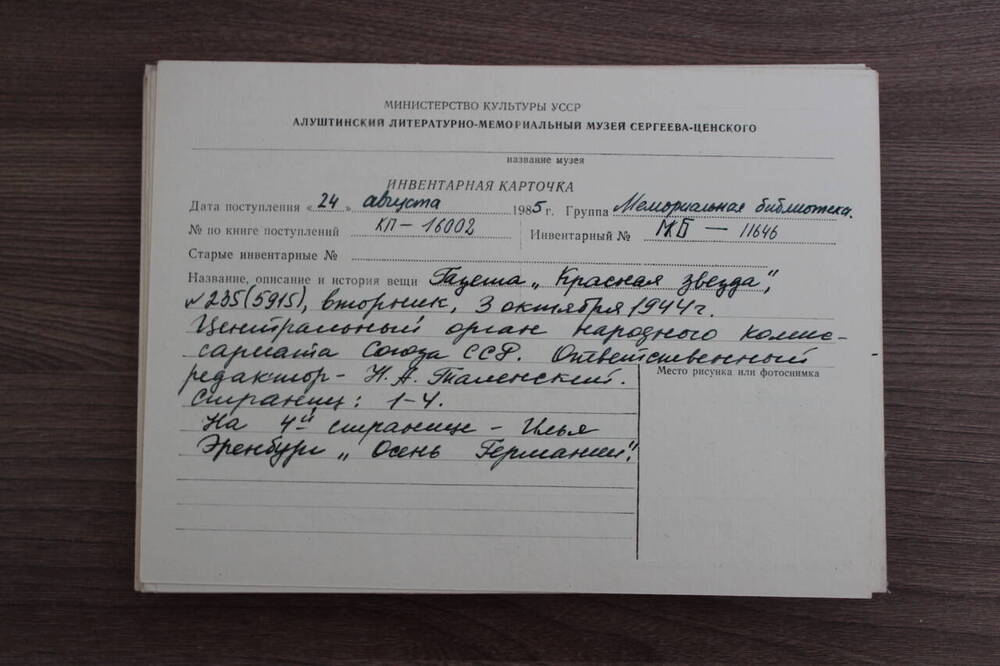 МИНИСТЕРСТВО КУЛЬТУРЫ УССР
АЛУШТИНСКИЙ ЛИТЕРАТУРНО-МЕМОРИАЛЬНЫЙ МУЗЕЙ СЕРГЕЕВА-ЦЕНСКОГО
название музея
ИНВЕНТАРНАЯ КАРТОЧКА
Дата поступления «24» августа 1985 г. Группа Мемориальная библиотека.
№ по книге поступлений КП-16002 Инвентарный № МБ — 11646
Старые инвентарные №
Название, описание и история вещи Газета „Красная звезда",
№235(5915), вторник, 3 октября 1944 г.
Центральный орган народного комис-
сариата Союза ССР. Ответственный
редактор - Н. А. Таленский.
Место рисунка или фотоснимка
страниц: 1-4.
На 4й странице - Илья
Эренбург „Осень Германии".